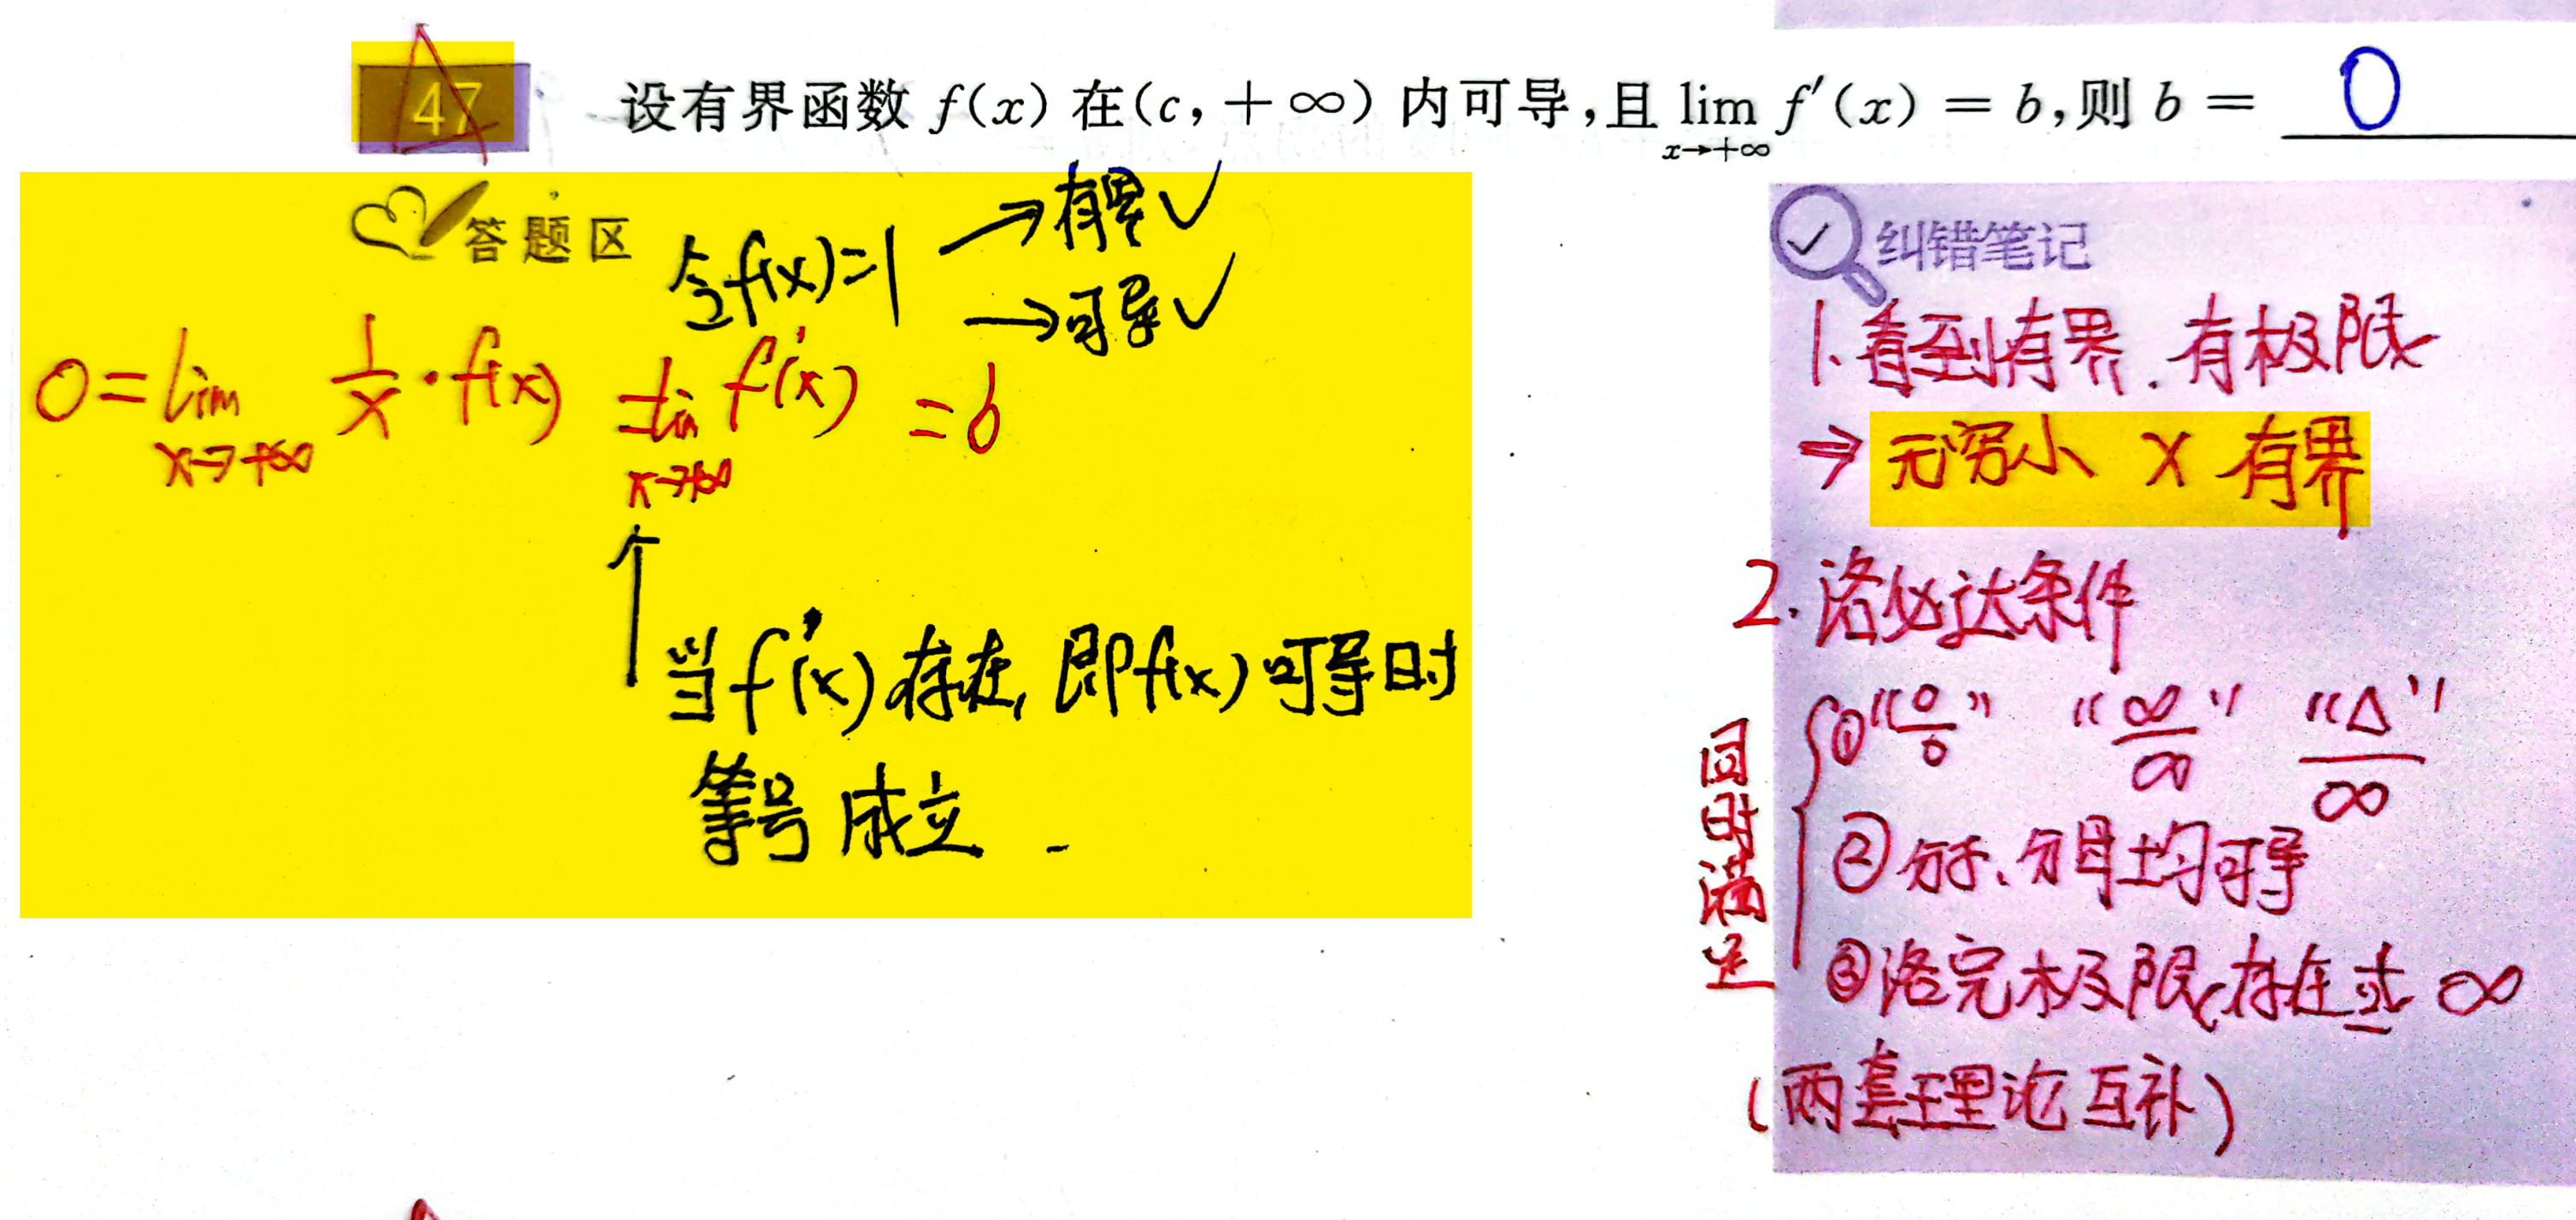 47 设有界函数 f(x) 在(c, +∞) 内可导,且 lim f′(x) = b,则 b = 0
x→+∞
答题区
令f(x)=1 →有界✓
→可导✓
0=lim 1/x·f(x) =lim f′(x) =b
x→+∞ x→+∞
↑
当f′(x)存在,即f(x)可导时
等号成立.
纠错笔记
1.看到有界.有极限
⇒ 无穷小 × 有界
2.洛必达条件
同时满足
①"0/0" "∞/∞" "Δ"/∞
②分子、分母均可导
③洛完极限存在或∞
(两套理论互补)